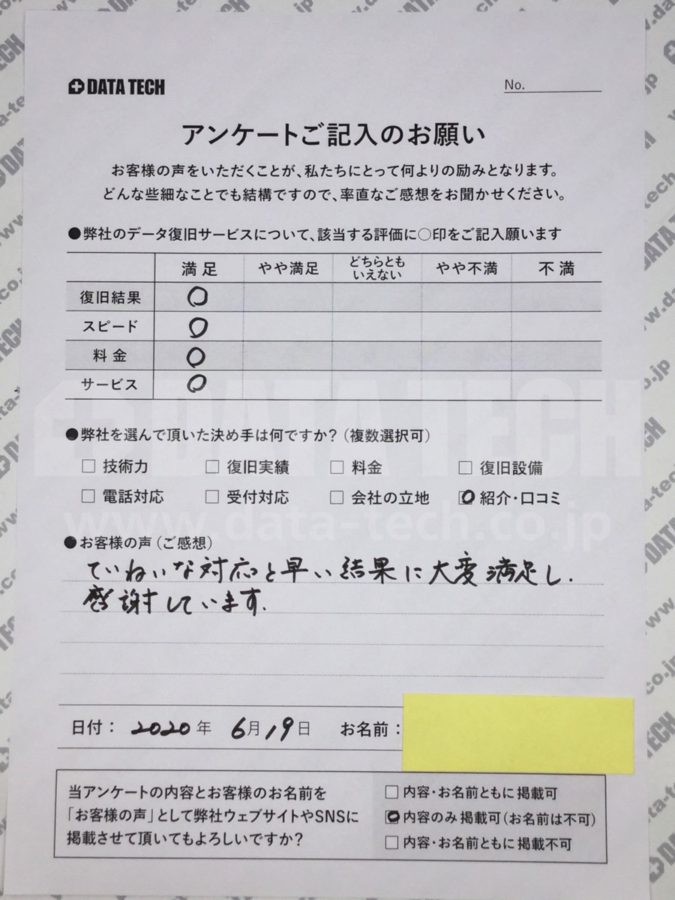 DATA TECH
No.
アンケートご記入のお願い
お客様の声をいただくことが、私たちにとって何よりの励みとなります。
どんな些細なことでも結構ですので、率直なご感想をお聞かせください。
●弊社のデータ復旧サービスについて、該当する評価に○印をご記入願います
満足 やや満足 どちらともいえない やや不満 不満
復旧結果 ○
スピード ○
料金 ○
サービス ○
●弊社を選んで頂いた決め手は何ですか?(複数選択可)
□ 技術力 □ 復旧実績 □ 料金 □ 復旧設備
□ 電話対応 □ 受付対応 □ 会社の立地 ☑ 紹介・口コミ
DATA TECH
www.data-tech.co.jp
●お客様の声(ご感想)
ていねいな対応と早い結果に大変満足し.
感謝しています.
日付: 2020年 6月19日 お名前:
当アンケートの内容とお客様のお名前を
「お客様の声」として弊社ウェブサイトやSNSに
掲載させて頂いてもよろしいですか?
□ 内容・お名前ともに掲載可
☑ 内容のみ掲載可(お名前は不可)
□ 内容・お名前ともに掲載不可